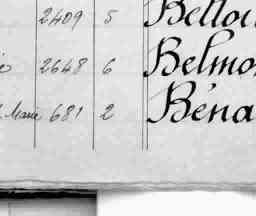 2409 5 Belloi
2648 6 Belmo
Marie 681 2 Béna